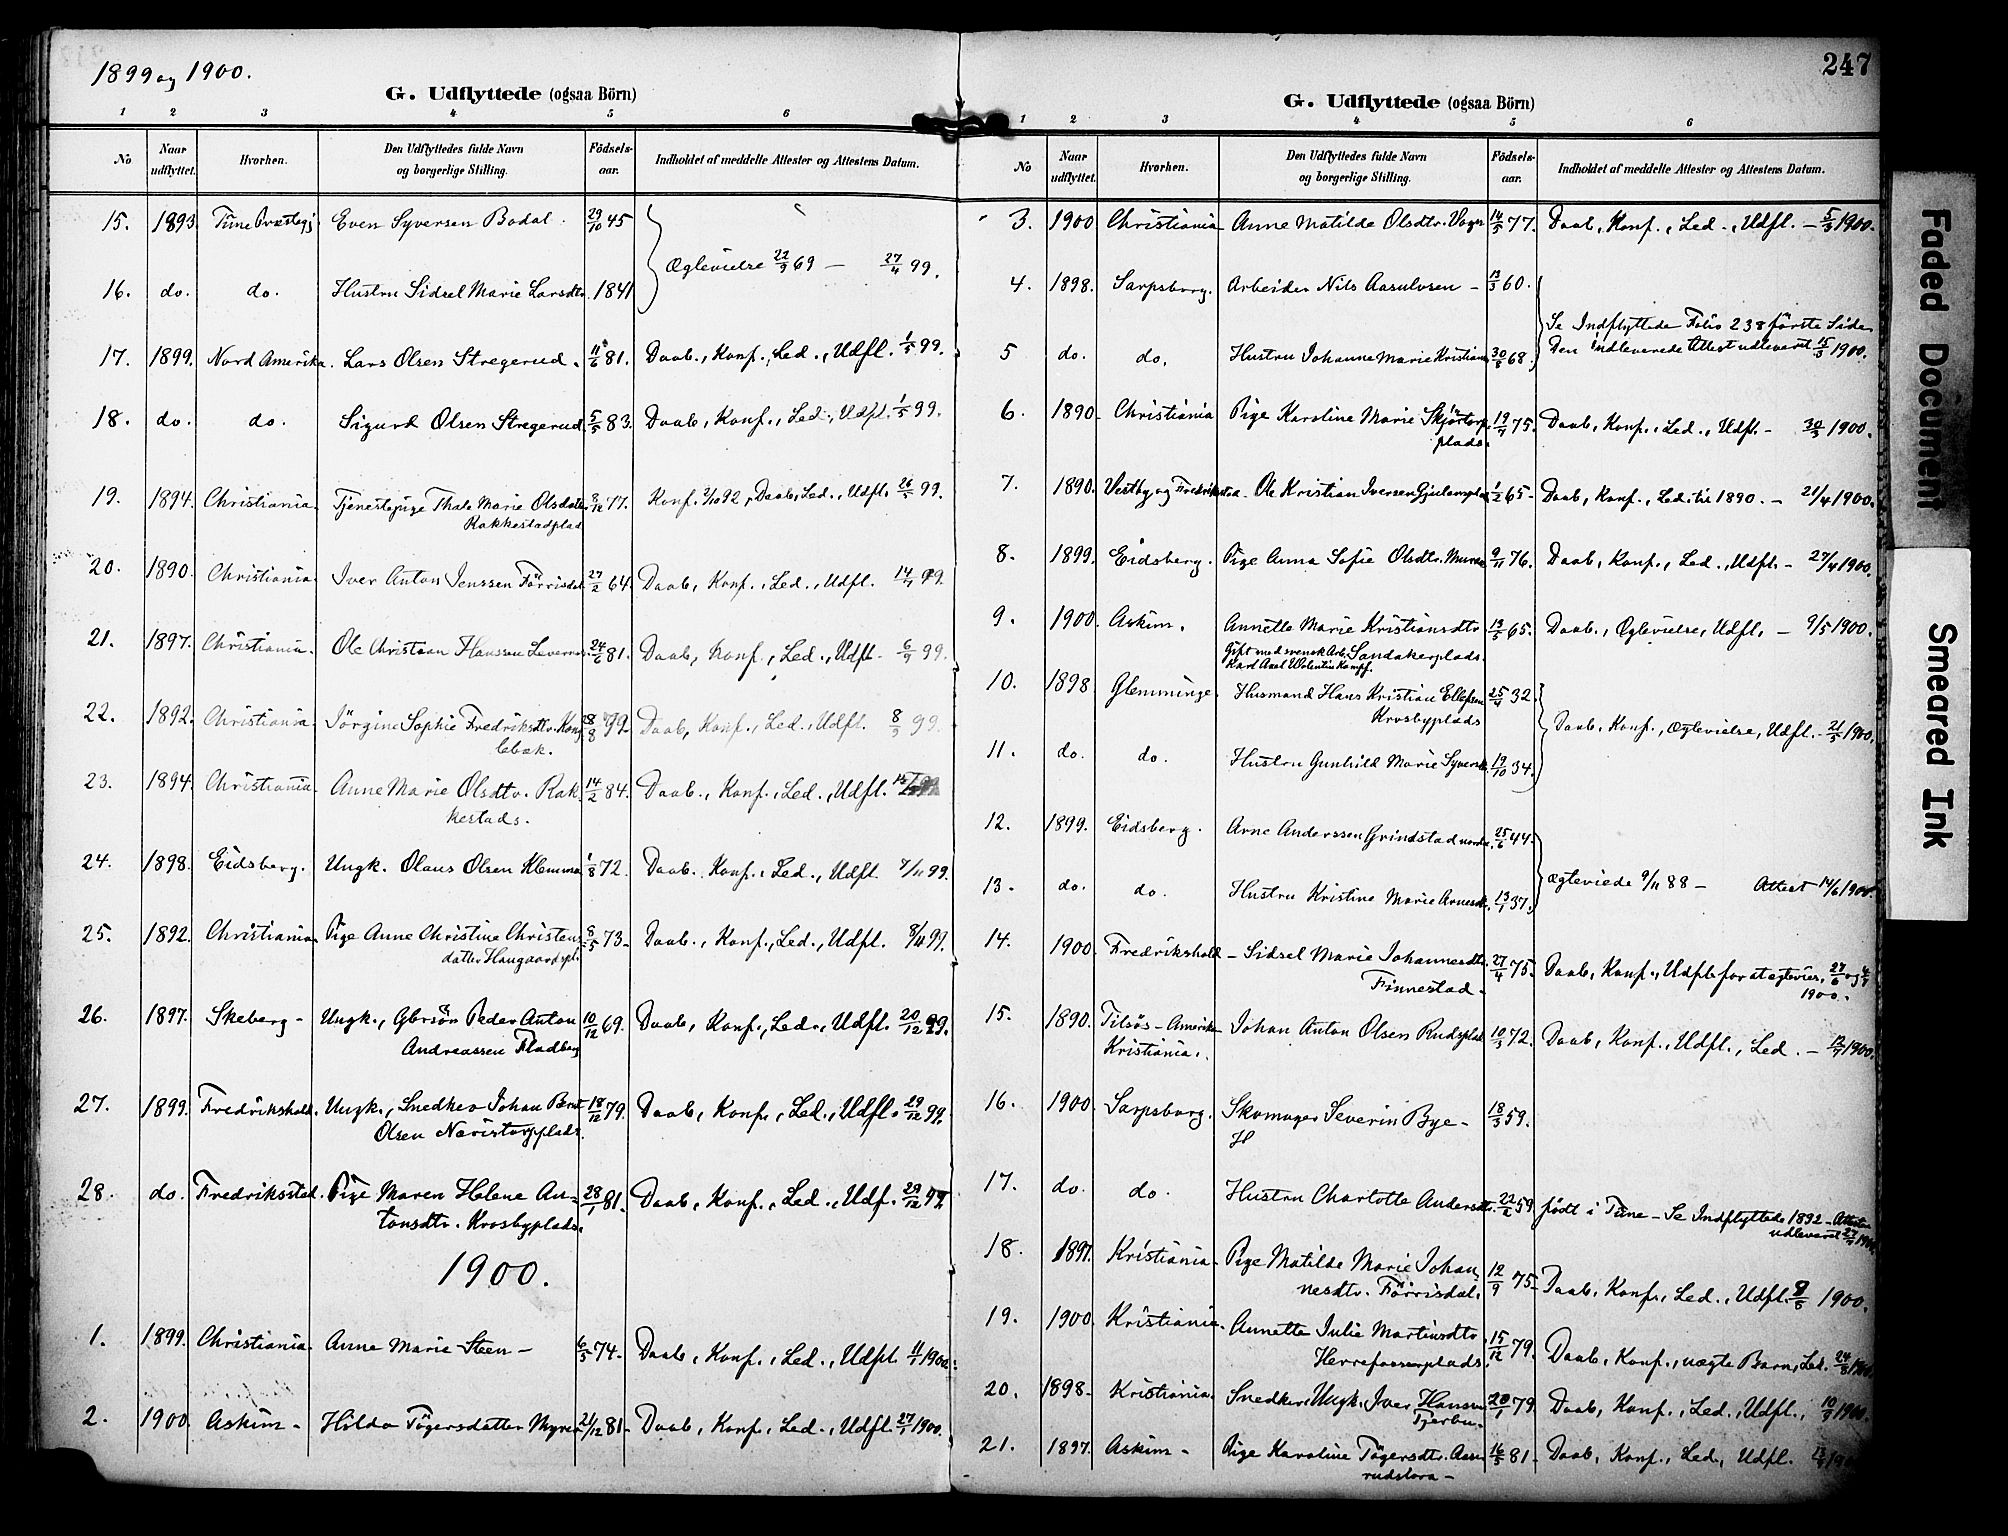 1899 og 1900.
G. Udflyttede (ogsaa Börn)
1 2 3 4 5 6
No Naar udflyttet. Hvorhen. Den Udflyttedes fulde Navn og borgerlige Stilling. Födsels-aar. Indholdet af meddelte Attester og Attestens Datum.
15. 1893. Tune Præstegj. Even Syversen Bodal. 29/10 45
Ægtevielse 22/9 69 — 27/4 99.
16. do. do. Hustru Sidsel Marie Larsdtr. 1841
17. 1899. Nord Amerika. Lars Olsen Stregerud. 11/6 81. Daab., Konf., Led., Udfl. 1/5 99.
18. do. do. Sigurd Olsen Stregerud. 5/5 83. Daab, Konf., Led., Udfl. 1/5 99.
19. 1894. Christiania. Tjenestepige Thale Marie Olsdatter 8/12 77. Konf. 2/10 92, Daab, Led., Udfl. 26/5 99.
Rakkestadplad
20. 1890. Christiania. Iver Anton Jenssen Förrisdal 27/2 64. Daab, Konf., Led., Udfl. 14/7 99.
21. 1897. Christiania. Ole Christian Hanssen 24/6 81. Daab, Konf., Led., Udfl. 6/9 99.
22. 1892. Christiania. Jörgine Sophie Fredriksdtr. Kon-
lebæk. Daab, Konf., Led., Udfl. 8/9 99.
23. 1894. Christiania. Anne Marie Olsdtr. Rak- 14/2 84. Daab., Konf., Led., Udfl.
kestads.
24. 1898. Eidsberg. Ungk. Olaus Olsen Klemma 1/8 72. Daab. Konf., Led., Udfl. 7/11 99.
25. 1892. Christiania. Pige Anne Christine Christens- 8/5 73. Daab., Konf., Led., Udfl. 8/11 99.
datter Haugaardspl.
26. 1897. Skeberg - Ungk., Gbrsön Peder Anton 10/12 69. Daab, Konf., Led., Udfl. 20/12 99.
Andreassen Fladberg
27. 1899. Fredrikshald. Ungk., Snedker Johan Bernt 18/12 79. Daab, Konf., Led., Udfl. 29/12 99.
Olsen Navistorpplads.
28. do. Fredriksstad. Pige Maren Helene An- 28/1 81. Daab, Konf., Led., Udf. 29/12 99
tonsdtr. Krosbyplads.
1900.
1. 1899. Christiania. Anne Marie Steen - 6/5 74. Daab, Konf., Led., Udfl. 11/1 1900.
2. 1900. Askim - Hilda Tögersdatter Myrer 21/12 81. Daab, Konf., Led., Udfl. 27/1 1900.
247
G. Udflyttede (ogsaa Börn)
1 2 3 4 5 6
No Naar udflyttet. Hvorhen. Den Udflyttedes fulde Navn og borgerlige Stilling. Födsels-aar. Indholdet af meddelte Attester og Attestens Datum.
3. 1900 Christiania Anne Matilde Olsdtr. 14/5 77. Daab, Konf., Led., Udfl. — 5/3 1900.
4. 1898. Sarpsborg. Arbeider Nils Aasulvsen - 13/3 60.
Se Indflyttede Folio 238 förste Side
5 do. do. Hustru Johanne Marie Kristians 30/8 68. Den indleverede Attest udleveret 15/3 1900.
6. 1890. Christiania Pige Karoline Marie Skjörtorp 19/7 75. Daab, Konf., Led., Udfl. - 30/3 1900.
plads.
7. 1890. Vestby og Fredriksstad. Ole Kristian Iversen 1/2 65. Daab, Konf., Led. til 1890. — 21/4 1900.
8. 1899. Eidsberg. Pige Anna Sofie Olsdtr. 9/11 76. Daab, Konf., Led., Udfl. - 27/4 1900.
9. 1900. Askim. Annette Marie Kristiansdtr. 13/5 65. Daab., Ægtevielse, Udfl. — 9/5 1900.
Gift med svensk Arb. Sandakerplads.
Karl Axel Valentin Kampf.
10. 1898 Glemminge. Husmand Hans Kristian Ellefsen 25/4 32.
Krosbyplads
Daab, Konf., Ægtevielse, Udfl. 21/5 1900.
11. do. do. Hustru Gunhild Marie Syversd. 19/10 34.
12. 1899. Eidsberg. Arne Anderssen Grindstad nordre. 25/6 44.
13. do. do. Hustru Kristine Marie Arnesd. 13/1 37. Ægteviede 9/11 88 — Attest 14/6 1900.
14. 1900. Fredrikshald - Sidsel Marie Johannesdtr. 27/4 75. Daab, Konf., Udfl. for at ægtevies, 27/6 og 4/7
Finnestad. 1900.
15. 1890. Tilsös - Amerika Johan Anton Olsen Rudsplad 10/3 72. Daab, Konf., Udfl., Led. — 12/7 1900.
Kristiania.
16. 1900. Sarpsborg. Skomager Severin Bye - 18/3 59.
H
17. do. do. Hustru Charlotte Andersdtr. 22/2 59. födt i Tune - Se Indflyttede 1892 - Attesten
udleveret
18. 1897. Kristiania. Pige Matilde Marie Johan- 12/9 75. Daab, Konf., Led., Udfl. 9/8 1900.
nesdtr. Förrisdal.
19. 1900. Kristiania. Annette Julie Martinsdtr. 15/12 79. Daab, Konf., uægte Barn, Led. 24/8 1900
Herrefosserplads.
20. 1898. Kristiania. Snedker Ungk. Iver Hansen 20/1 79. Daab, Konf., Led., Udfl., 10/9 1900.
Tjerbu.
21. 1897. Askim - Pige Karoline Tögersdtr. Aase- 16/5 81. Daab, Konf., Led., Udfl.
rudstora -
Faded Document
Smeared Ink